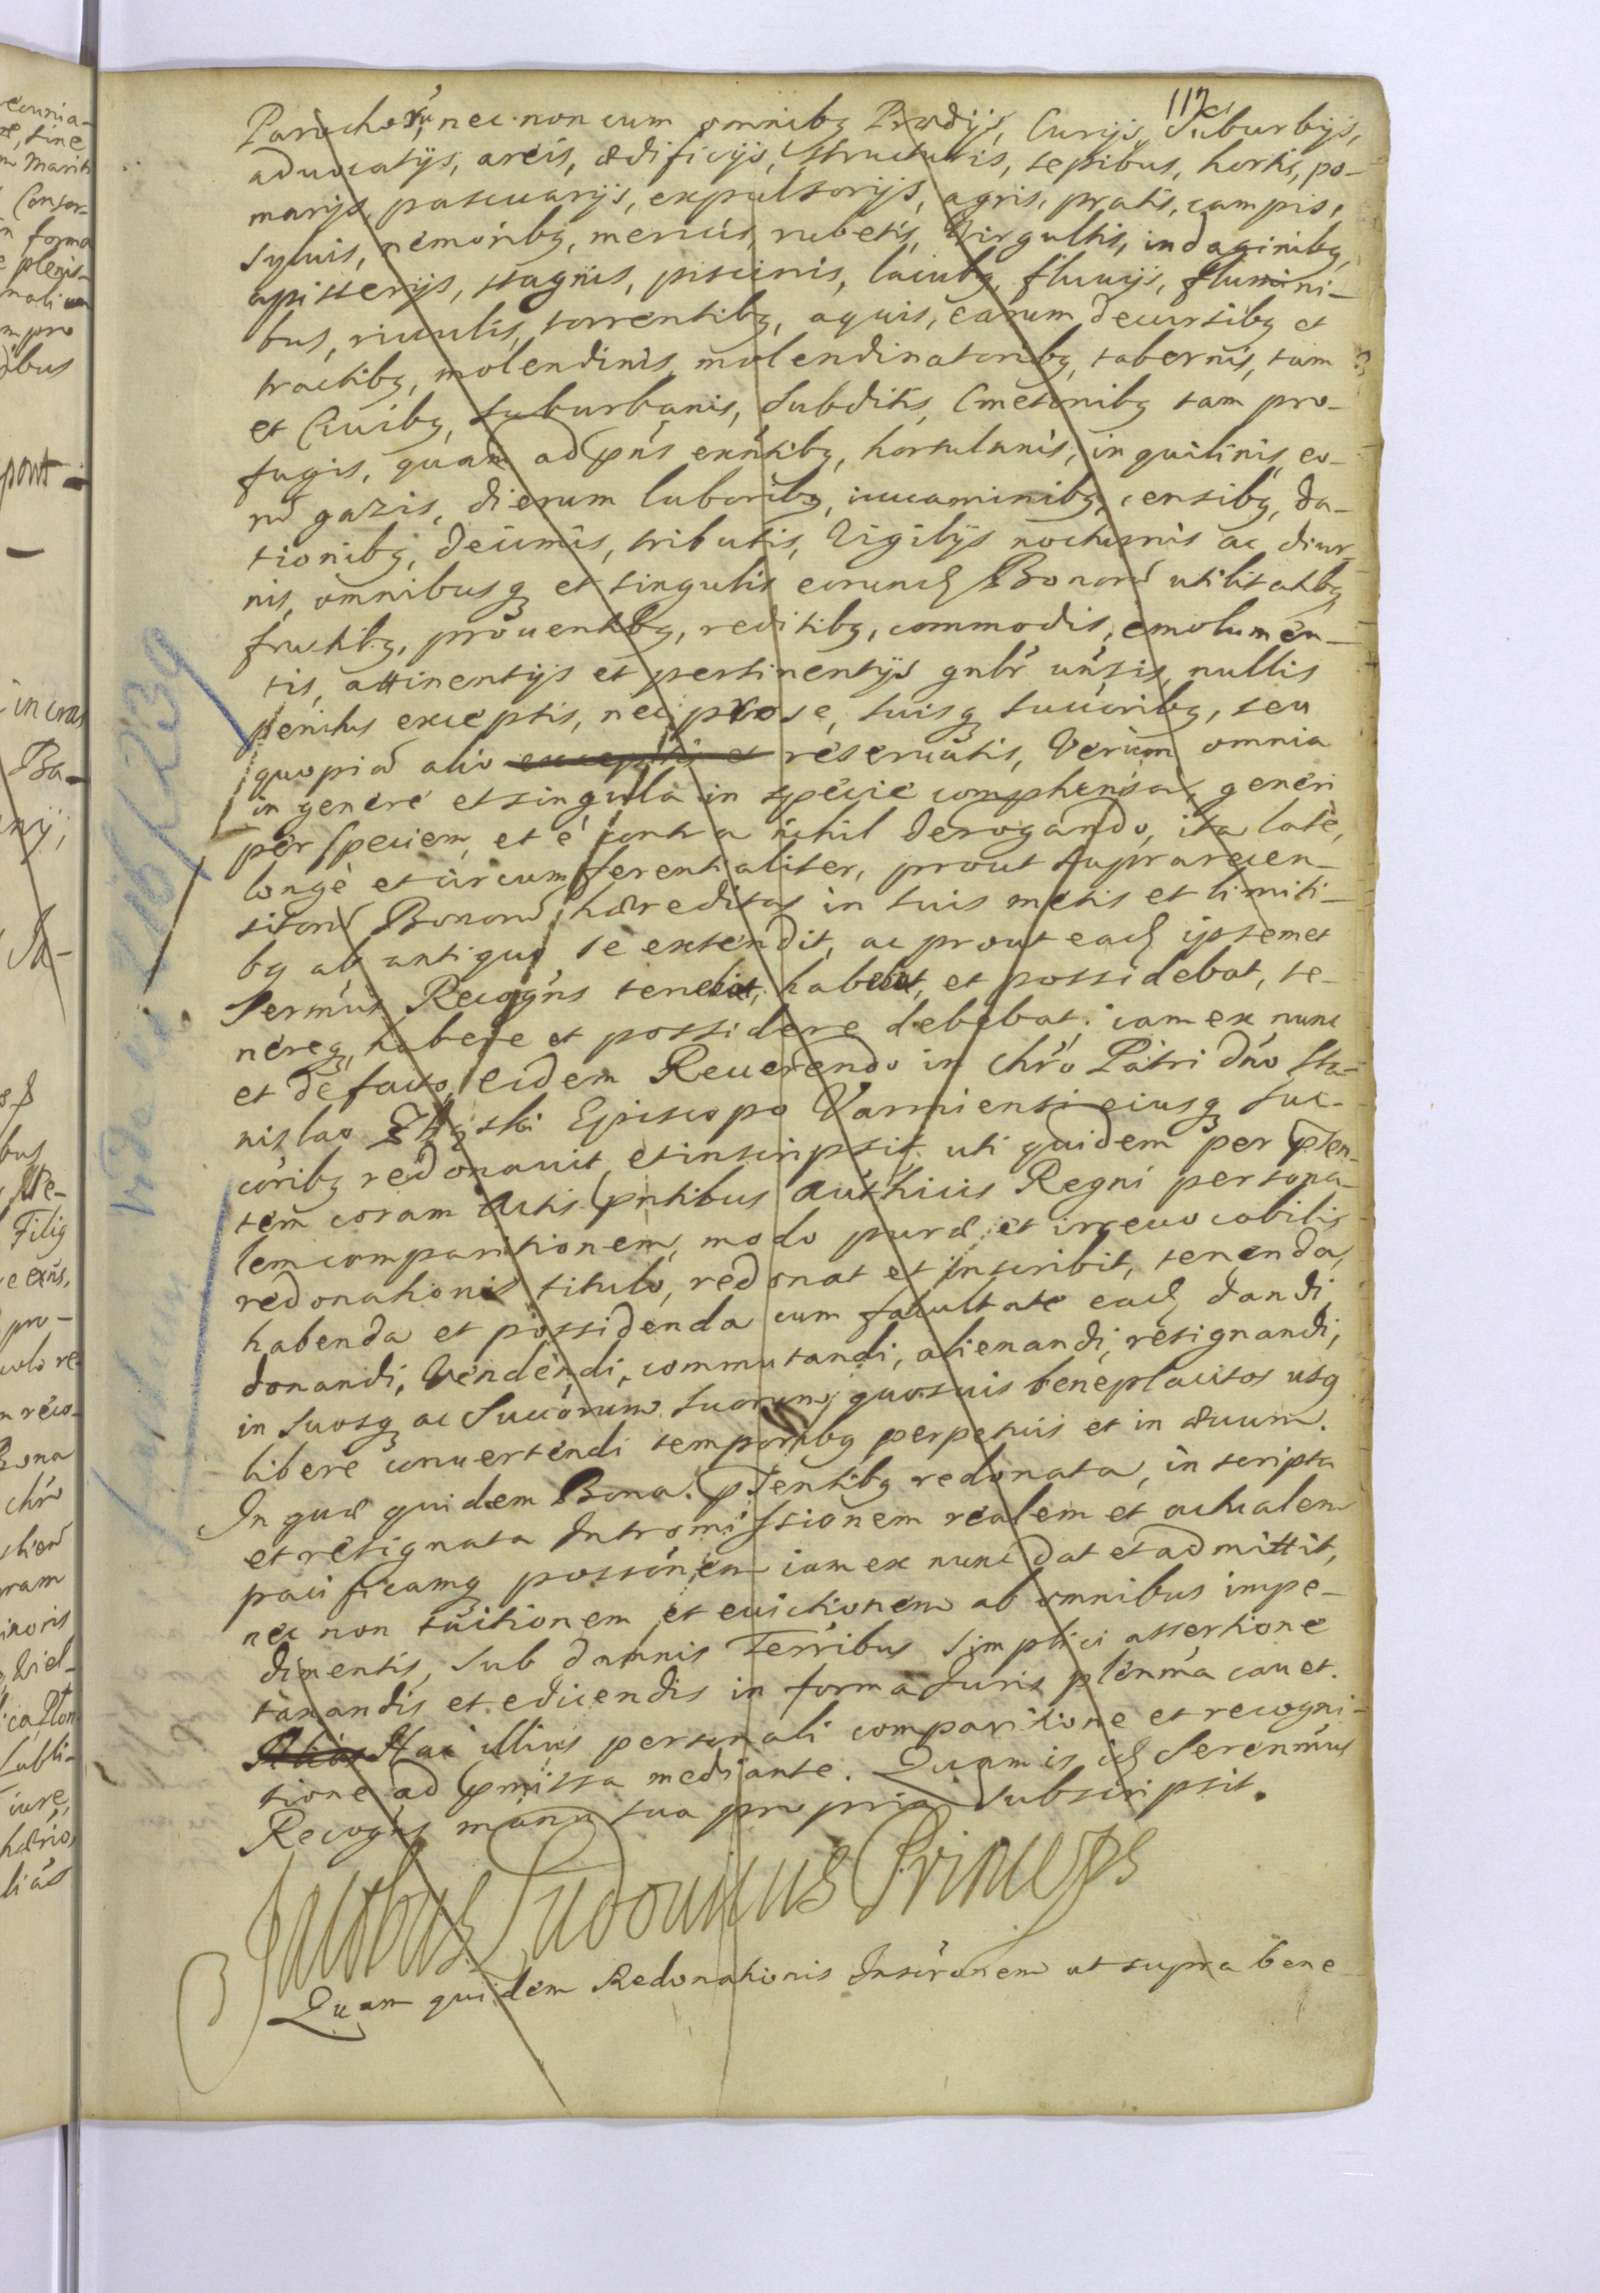 117
Parochorũ, nec non cum omnibq Prædijs, Curijs, Suburbijs,
aduocatijs, areis, ædificijs, structuris, sepibus, hortis, po-
marijs, pascuarijs, expulsorijs, agris, pratis, campis,
syluis, nemoribq, mericis, rubetis, Virgultis, indaginibq,
apisterijs, stagnis, piscinis, lacubq, fluuijs, flumini-
bus, riuulis, torrentibq, aquis, earum decursibq et
tractibq, molendinis, molendinatoribq, tabernis, tam
et Ciuibq, suburbanis, Subditis, Cmetonibq tam pro-
fugis, quam ad pñs exñtibq, hortulanis, inquilinis, eo-
rũ gazis, dierum laboribq, iuuaminibq, censibq, da-
tionibq, decimis, tributis, Vigilijs nocturnis ac diur-
nis, omnibusq et singulis eorund Bonorũ utilitatibq
fructibq, prouentibq, reditibq, commodis, emolumen-
tis, attinentijs et pertinentijs gnlr uńsis, nullis
penitus exceptis, nec pro se, suisq succoribq, seu
quopiã alio exceptis et reseruatis, Verum omnia
in genere et singula in specie comphensa, generi
per speciem, et è contra nihil derogando, ita latè,
longè et circumferentialiter, prout suprarecen-
sitorũ Bonorũ hæreditas in suis metis et limiti-
bq ab antiquo se extendit, ac prout ead ipsemet
Sermus Recogñs tenebat, habebat, et possidebat, te-
nereq, habere et possidere debebat, iam ex nunc
et de facto eidem Reuerendo in Chro Patri dño Sta-
nislao Episcopo Varmiensi eiusq suc-
coribq redonauit et inscripsit, uti quidem per psen-
tem coram Actis pntibus authicis Regni persona-
lem comparitionem, modo puræ et irreuocabilis
redonationis titulo, redonat et inscribit, tenenda,
habenda et possidenda cum facultate ead dandi,
donandi, Vendendi, commutandi, alienandi, resignandi,
in suosq ac Succorum suorum quosuis beneplacitos usq
liberè conuertendi temporibq perpetuis et in æuum.
In quæ quidem Bona psentibq redonata, inscripta
et resignata Intromissionem realem et actualem
pacificamq possońem iam ex nunc dat et admittit,
nec non tuitionem et euictionem ab omnibus impe-
dimentis, sub damnis Terribus simplici assertione
taxandis et edicendis in forma Juris plenma cauet.
Hac illius personali comparitione et recogni-
tione ad pmissa mediante. Quam is id Serenmus
Recogñs manu sua propria subscripsit.
Jacobus Ludouicus Princeps
Quam quidem Redonationis Inscrionem ut supra bene